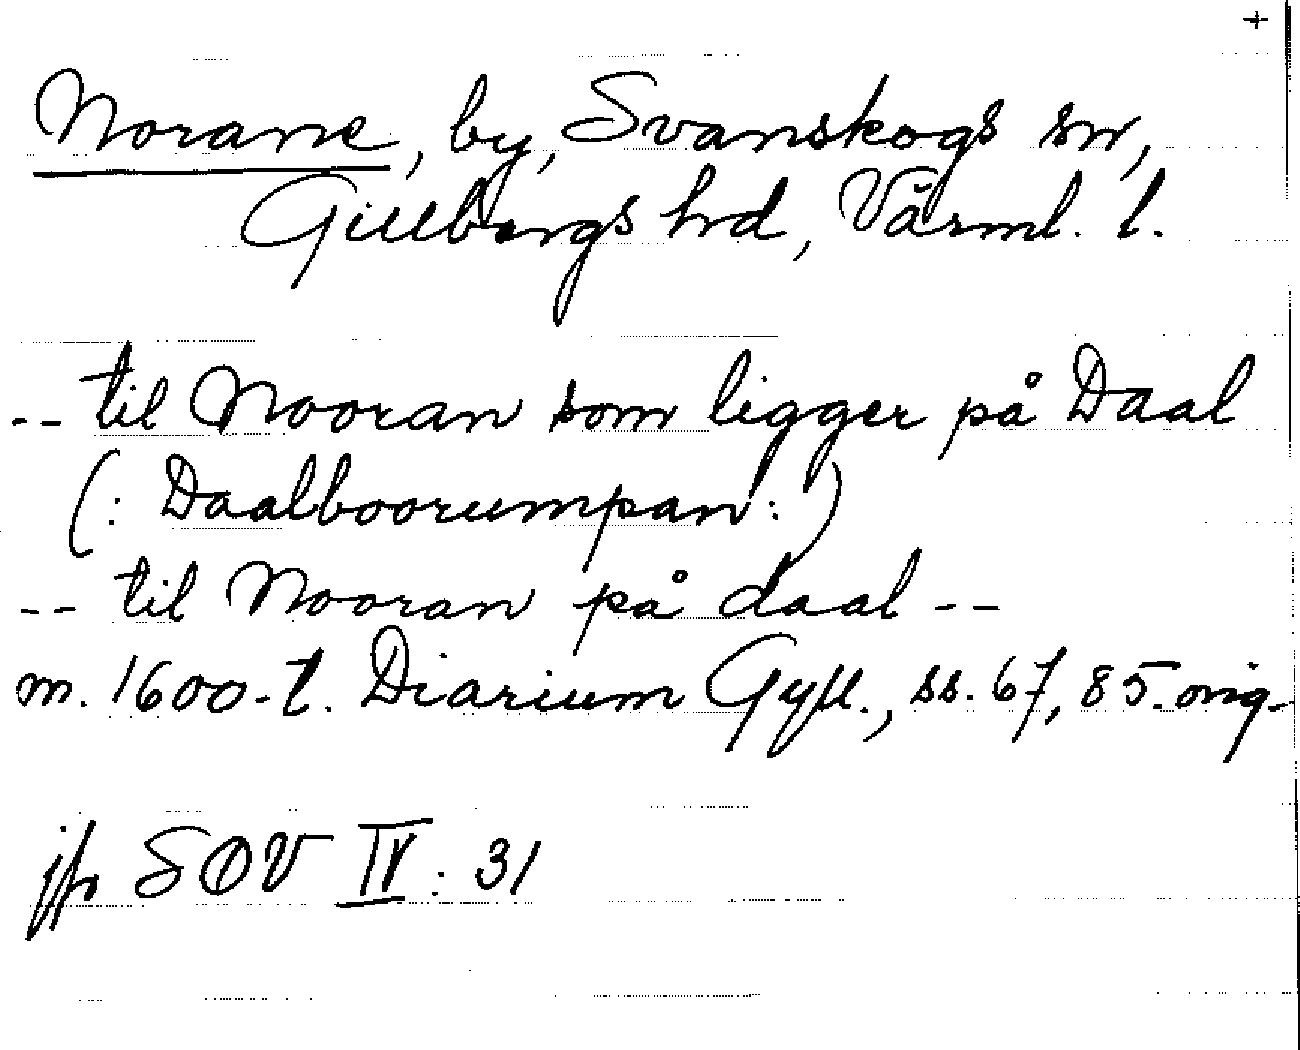 +
Norane, by, Svanskogs sn,
Gillbergs hrd, Värml. l.
-- til Nooran som ligger på Daal
(: Daalboorumpan :)
-- til Nooran på daal --
m. 1600-t. Diarium Gyll., ss. 67, 85. orig.
jfr SOV IV: 31